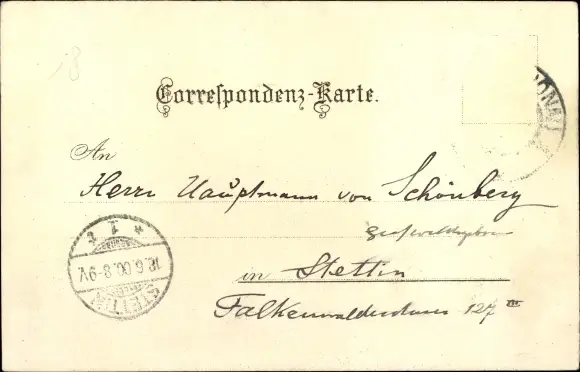 18
Correspondenz-Karte.
DONAU
An
Herrn Hauptmann von Schönberg
in Stettin
Falkenwalderstrasse 127 III
STETTIN
18.6.00.8-9V.
* 1 t